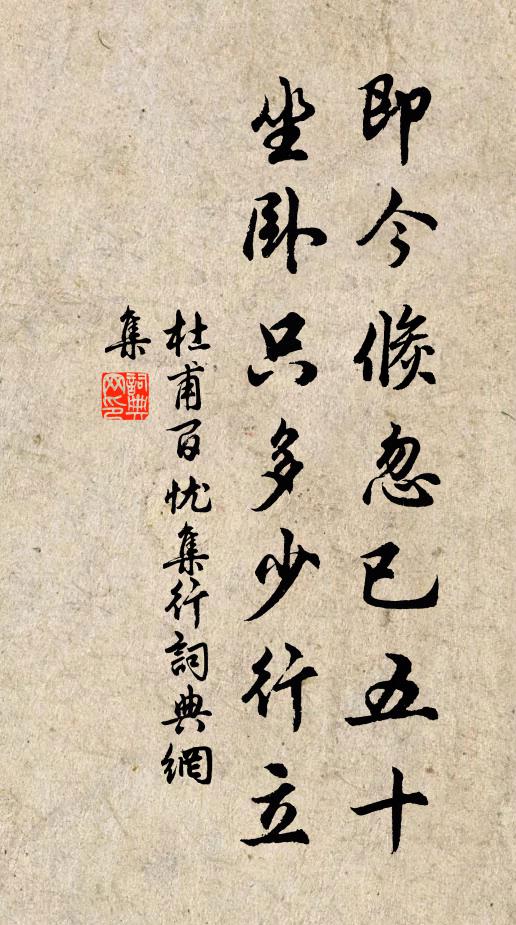 即今倏忽已五十
坐卧只多少行立
杜甫百忧集行詞典網
集
詞典
网印